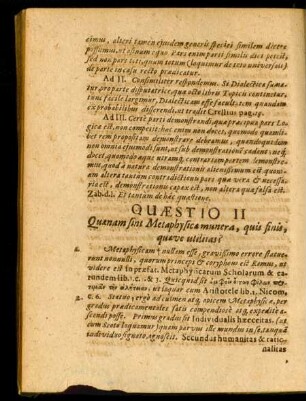 omni, alteri tamen ejusdem generis speciei similem dicere
possumus, ut asinum equo. Pars enim parti similis dici potest,
sed non pars toti, quum totum (loquimur de toto universali)
de parte in casu recto prædicatur.
Ad II. Consimiliter respondemus. Si Dialectica suma-
tur pro parte disputatrice, quæ octo libris Topicis continetur,
tum facile largimur, Dialecticam esse facultatem quandam
ex probabilibus disserendi, ut tradit Crellius pag. 19.
Ad III. Certe parti demonstrandi, quæ præcipua pars Lo-
gica est, non competit: hoc enim non docet, quomodo quamli-
bet rem propositam demonstrare debeamus, quandoquidem
non omnia ejusmodi sunt, ut sub demonstrationem cadant, ne-
dum, quomodo eaque utramque contradictionis partem demonstre-
mus, quod à natura demonstrationis alienissimum est: quoni-
am altera tantum contradictionis pars quæ vera & necessa-
ria est, demonstrationis capax est, non altera quæ falsa est.
Zab. d. l. Et tantum de hac quæstione.
QUÆSTIO II
Quænam sint Metaphysicæ munera, quis finis,
quæve utilitas?
Metaphysicam nullum esse, gravissimo errore statue-
runt nonnulli, quorum princeps & coryphæus est Ramus, ut
videre est in præfat. Metaphysicarum Scholarum & ea-
rundem lib. 1. c. & 3. quicquid sit
ut loquar cum Aristotele lib. 1. Nicom.
c. 6. Statuo, ergò ad culmen atque apicem Metaphysicæ, per
gradus prædicamentales satis compendiose atque expedite a-
scendi posse. Primum gradum sit Individualis hæcceitas, (ut
cum Scoto loquamur) quam parvuli ille mundus in se, tanquam
individuo signato, agnoscit. Secundus humanitas & ratio-
nalitas